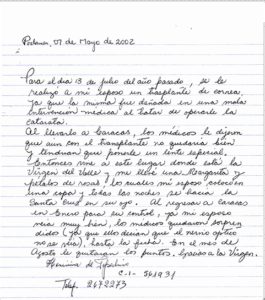 Porlamar, 07 de Mayo de 2002
Para el día 13 de julio del año pasado, se le
realizó a mi esposo un trasplante de cornea,
ya que la misma fue dañada en una mala
intervención medica al tratar de operarle la
catarata.
Al llevarlo a Caracas, los médicos le dijeron
que aun con el transplante no quedaria bien
y tendrian que ponerle un lente especial,
Entonces vine a este lugar donde está la
Virgen del Valle y me llevé una Margarita y
petalos de rosas los cuales mi esposo colocó en
una copa y todas las noches se hacia la
Santa Cruz en su ojo. Al regresar a Caracas
en Enero para su control, ya mi esposo
veia muy bien, los médicos quedaron sorpren
didos (ya que ellos decian que el nervio optico
no se veia), hasta la fecha. En el mes de
Agosto le quitaran los puntos, Gracias a la Virgen.
de
C.I- 561931
Telef. 2672273